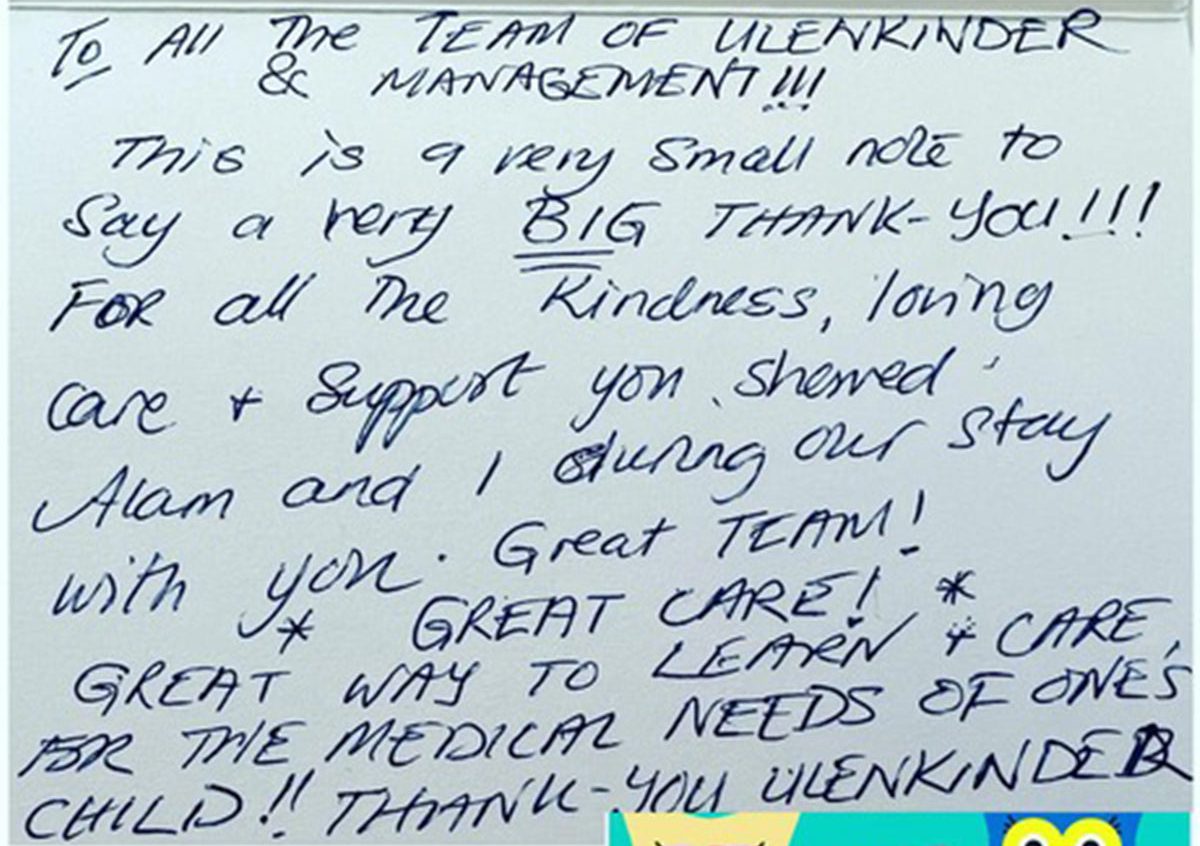 To All The TEAM OF ULENKINDER
& MANAGEMENT!!!
This is a very small note to
Say a very BIG THANK-YOU!!!
FOR all The Kindness, loving
care + Support you showed
Alam and I during our stay
with you. Great TEAM!
* GREAT CARE! *
GREAT WAY TO LEARN + CARE
FOR THE MEDICAL NEEDS OF ONE'S
CHILD!! THANK-YOU ULENKINDER